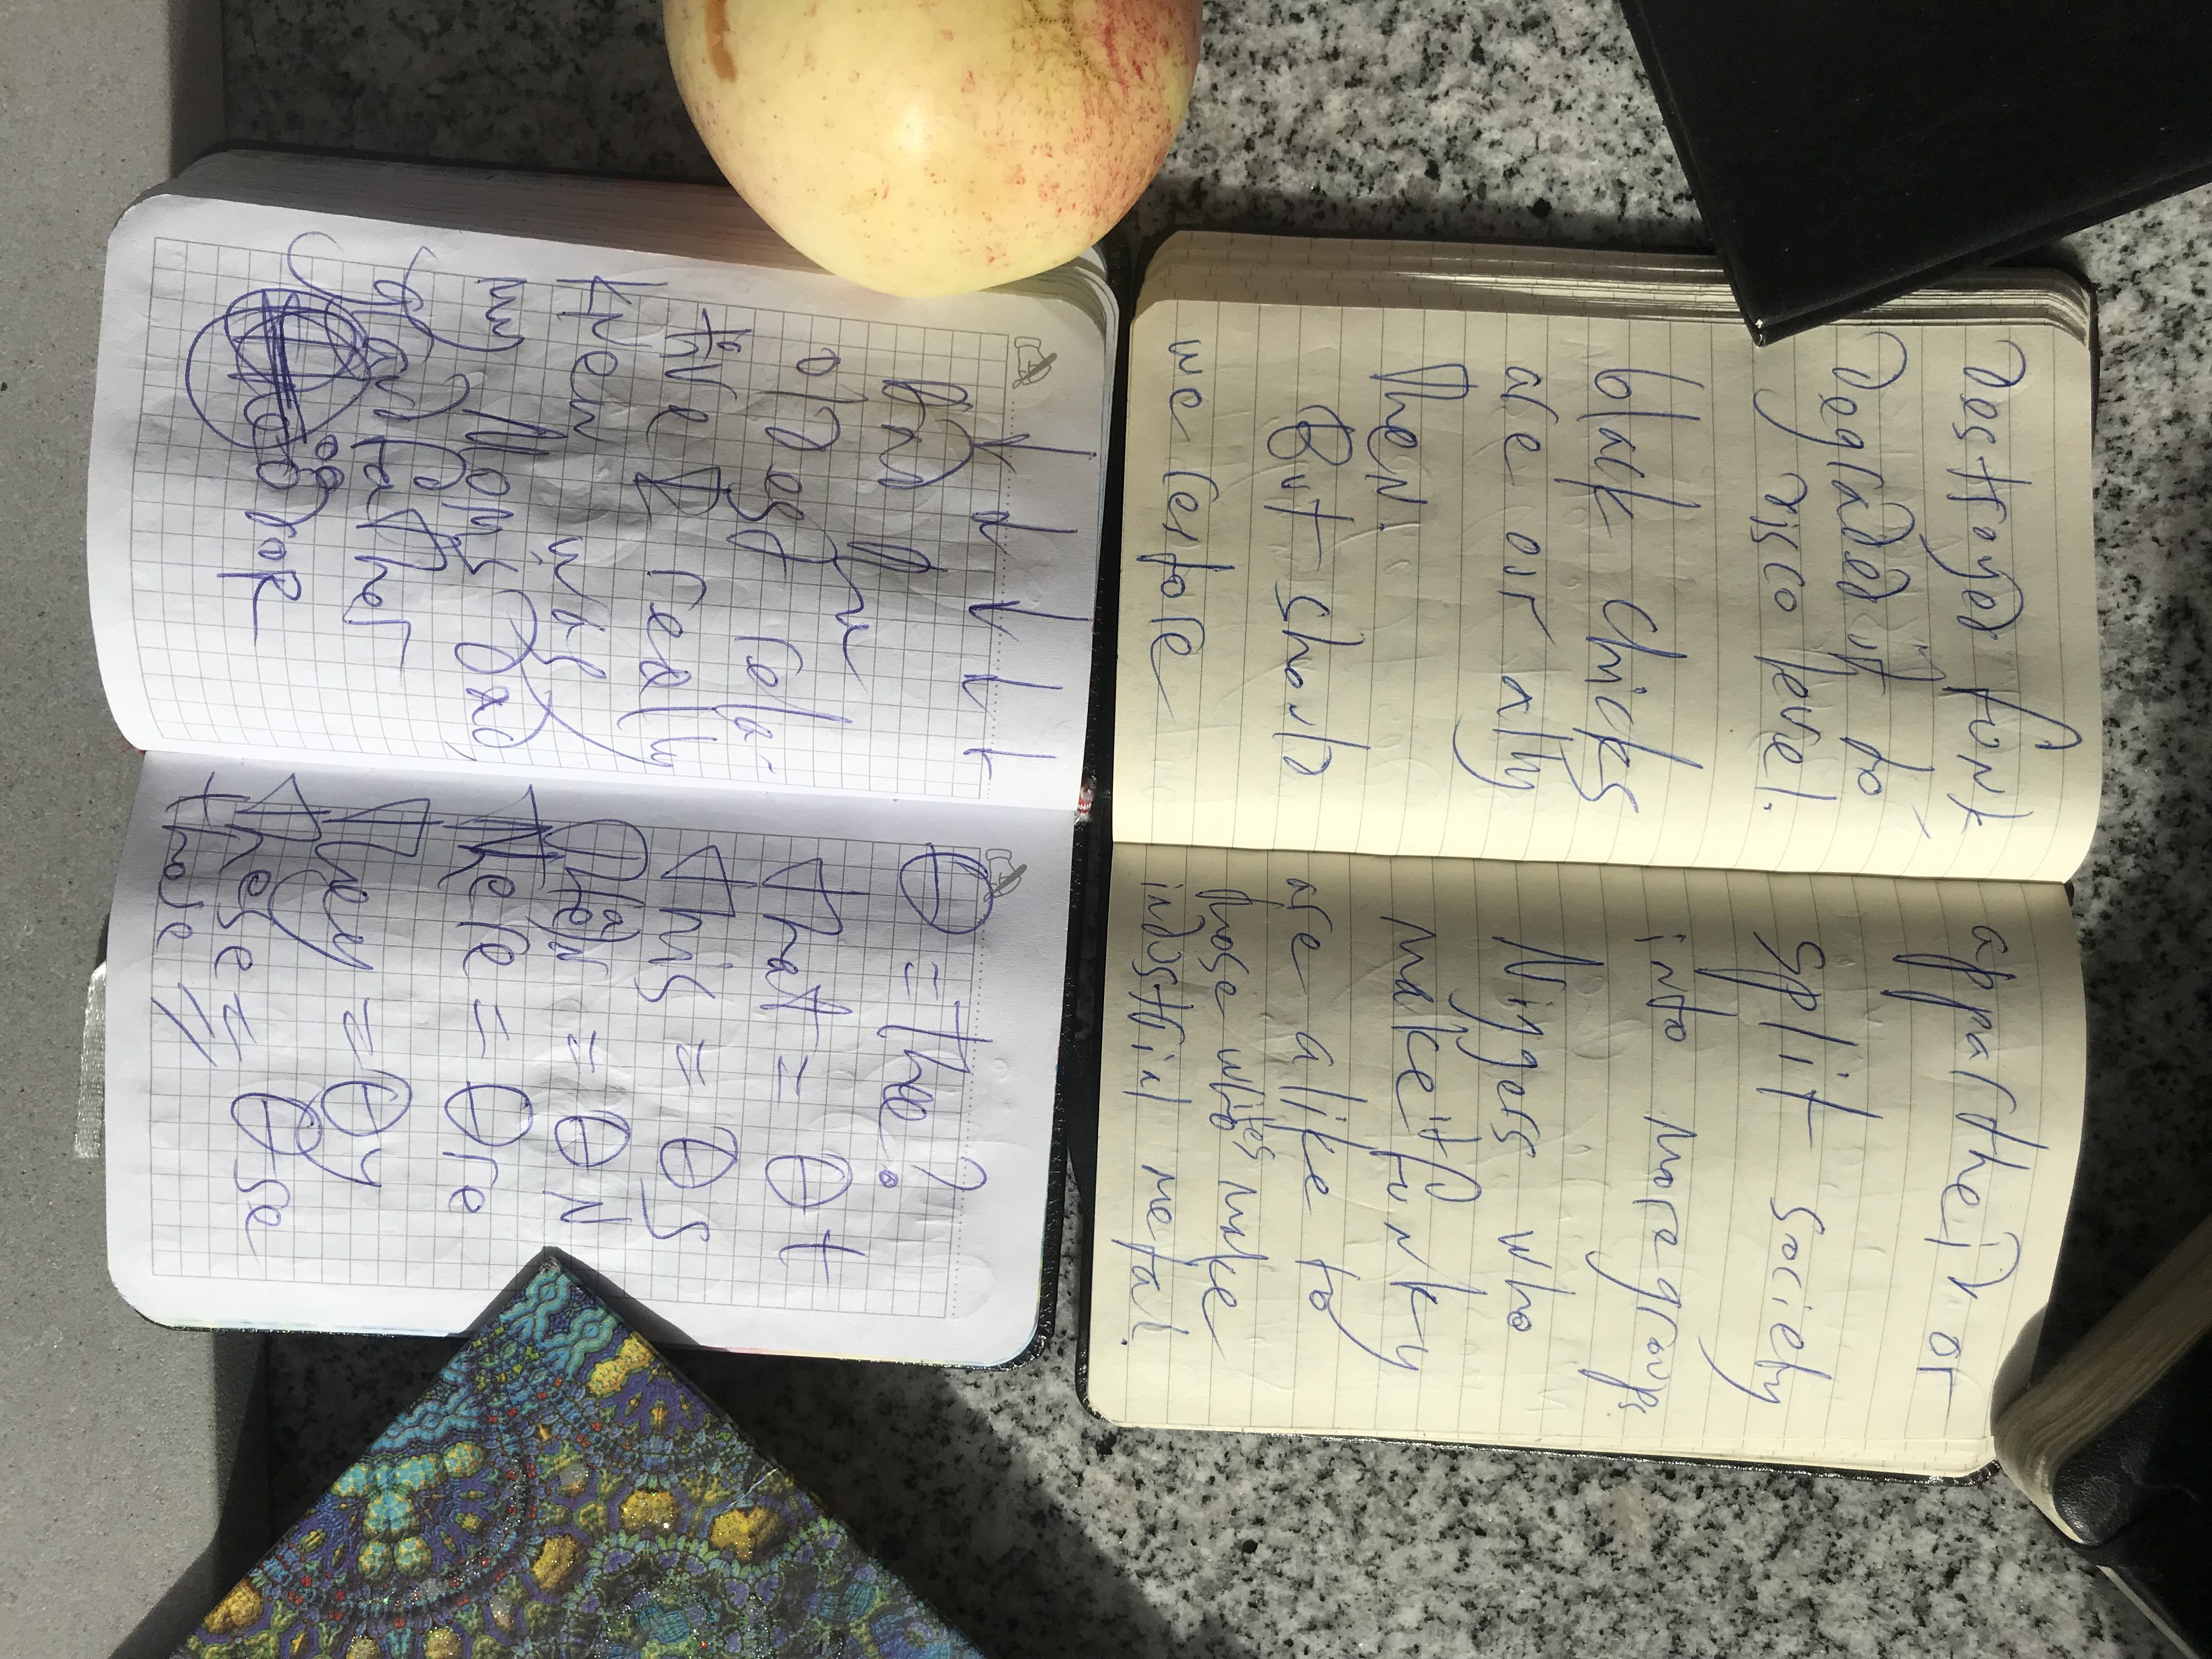 Destroyed funk,
Degraded it to
disco level.
black chicks
are our ally
then.
But should
we restore
appartheid or
split society
into more groups.
Niggers who
make it funky
are alike to
those whites make
industrial metal.
And my
oldest rela-
tive I really
knew was
my Mom's Dad,
grandfather
θ = the?
that = θt
this = θs
than = θN
there = θre
they = θy
these = θse
those //